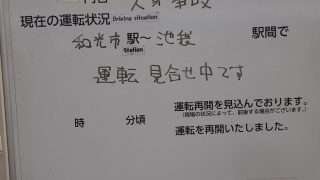 人身事故
現在の運転状況 Driving situation
和光市 駅～ 池袋 駅間で
Station
運転 見合せ中です
運転再開を見込んでおります。
(現場の状況によって、前後する場合がございます。)
時 分頃
運転を再開いたしました。